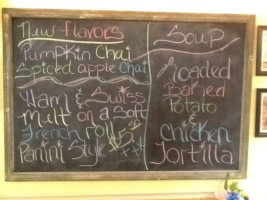 New flavors
Pumpkin Chai
Spiced apple Chai
Ham & Swiss
melt on a soft
French roll
Panini Style
Soup
Loaded
Baked
Potato
&
Chicken
Tortilla